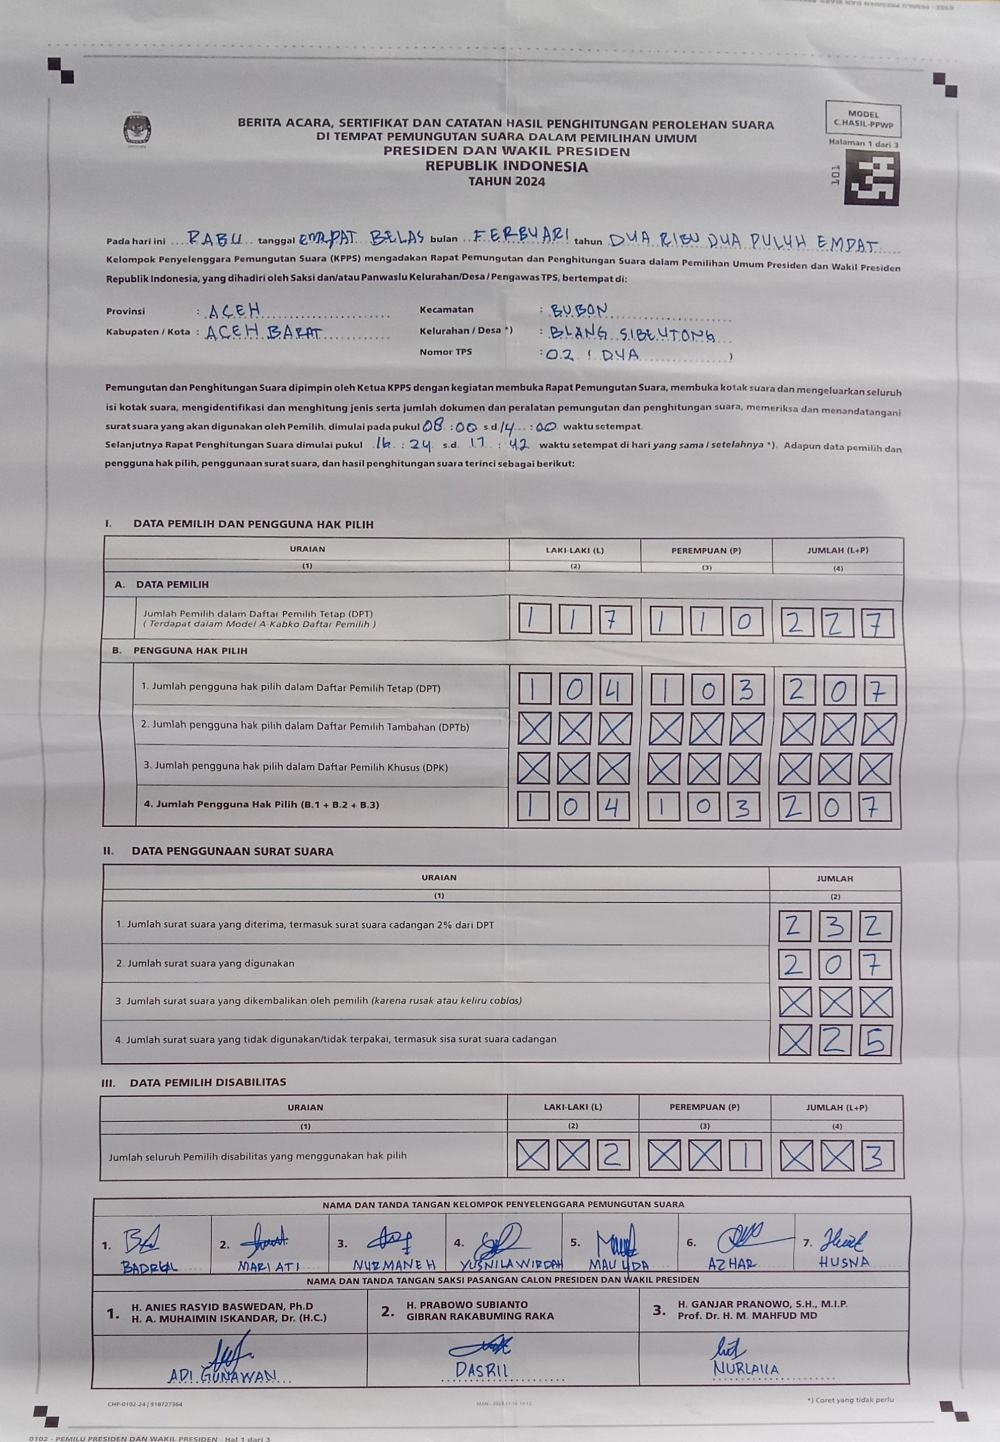 MODEL
C.HASIL-PPWP
Halaman 1 dari 3
101
BERITA ACARA, SERTIFIKAT DAN CATATAN HASIL PENGHITUNGAN PEROLEHAN SUARA
DI TEMPAT PEMUNGUTAN SUARA DALAM PEMILIHAN UMUM
PRESIDEN DAN WAKIL PRESIDEN
REPUBLIK INDONESIA
TAHUN 2024
Pada hari ini RABU tanggal EMPAT BELAS bulan FERBUARI tahun DUA RIBU DUA PULUH EMPAT
Kelompok Penyelenggara Pemungutan Suara (KPPS) mengadakan Rapat Pemungutan dan Penghitungan Suara dalam Pemilihan Umum Presiden dan Wakil Presiden
Republik Indonesia, yang dihadiri oleh Saksi dan/atau Panwaslu Kelurahan/Desa / Pengawas TPS, bertempat di:
Provinsi : ACEH Kecamatan : BUBON
Kabupaten / Kota : ACEH BARAT Kelurahan / Desa *) : BLANG SIBEUTONG
Nomor TPS : 02 ( DUA )
Pemungutan dan Penghitungan Suara dipimpin oleh Ketua KPPS dengan kegiatan membuka Rapat Pemungutan Suara, membuka kotak suara dan mengeluarkan seluruh
isi kotak suara, mengidentifikasi dan menghitung jenis serta jumlah dokumen dan peralatan pemungutan dan penghitungan suara, memeriksa dan menandatangani
surat suara yang akan digunakan oleh Pemilih, dimulai pada pukul 08 : 00 s.d 14 : 00 waktu setempat.
Selanjutnya Rapat Penghitungan Suara dimulai pukul 16 : 24 s.d. 17 : 42 waktu setempat di hari yang sama / setelahnya *). Adapun data pemilih dan
pengguna hak pilih, penggunaan surat suara, dan hasil penghitungan suara terinci sebagai berikut:
I. DATA PEMILIH DAN PENGGUNA HAK PILIH
URAIAN LAKI-LAKI (L) PEREMPUAN (P) JUMLAH (L+P)
(1) (2) (3) (4)
A. DATA PEMILIH
Jumlah Pemilih dalam Daftar Pemilih Tetap (DPT) 1 1 7 1 1 0 2 2 7
( Terdapat dalam Model A-Kabko Daftar Pemilih )
B. PENGGUNA HAK PILIH
1. Jumlah pengguna hak pilih dalam Daftar Pemilih Tetap (DPT) 1 0 4 1 0 3 2 0 7
2. Jumlah pengguna hak pilih dalam Daftar Pemilih Tambahan (DPTb) X X X X X X X X X
3. Jumlah pengguna hak pilih dalam Daftar Pemilih Khusus (DPK) X X X X X X X X X
4. Jumlah Pengguna Hak Pilih (B.1 + B.2 + B.3) 1 0 4 1 0 3 2 0 7
II. DATA PENGGUNAAN SURAT SUARA
URAIAN JUMLAH
(1) (2)
1. Jumlah surat suara yang diterima, termasuk surat suara cadangan 2% dari DPT 2 3 2
2. Jumlah surat suara yang digunakan 2 0 7
3. Jumlah surat suara yang dikembalikan oleh pemilih (karena rusak atau keliru coblos) X X X
4. Jumlah surat suara yang tidak digunakan/tidak terpakai, termasuk sisa surat suara cadangan X 2 5
III. DATA PEMILIH DISABILITAS
URAIAN LAKI-LAKI (L) PEREMPUAN (P) JUMLAH (L+P)
(1) (2) (3) (4)
Jumlah seluruh Pemilih disabilitas yang menggunakan hak pilih X X 2 X X 1 X X 3
NAMA DAN TANDA TANGAN KELOMPOK PENYELENGGARA PEMUNGUTAN SUARA
1. 2. 3. 4. 5. 6. 7.
MARIATI NURMANEH YUSNILAWIRDAH MAULIDA AZHAR HUSNA
NAMA DAN TANDA TANGAN SAKSI PASANGAN CALON PRESIDEN DAN WAKIL PRESIDEN
1. H. ANIES RASYID BASWEDAN, Ph.D
H. A. MUHAIMIN ISKANDAR, Dr. (H.C.)
2. H. PRABOWO SUBIANTO
GIBRAN RAKABUMING RAKA
3. H. GANJAR PRANOWO, S.H., M.I.P.
Prof. Dr. H. M. MAHFUD MD
ADI GUNAWAN DASRIL NURLAILA
CHP-0102-24 | 918727364
*) Coret yang tidak perlu
0102 - PEMILU PRESIDEN DAN WAKIL PRESIDEN - Hal 1 dari 3